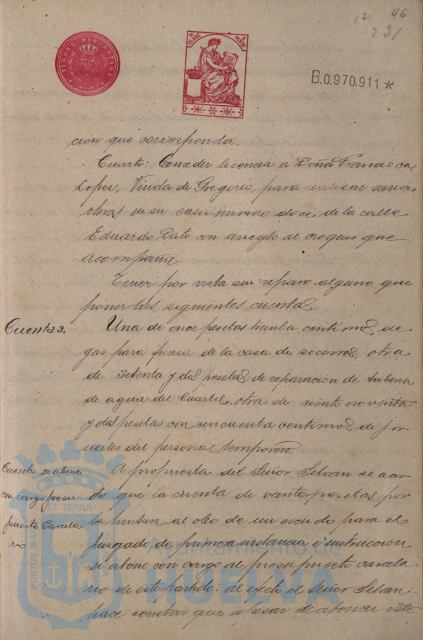 12 46
331
B.0.970.911*
cion que corresponda.
Cuarto: Conceder licencia a Doña Francisca
Lopez, Viuda de Gregorio, para realizar varias
obras en su casa numero doce de la calle
Eduardo Dato con arreglo al croquis que
acompaña.
Tener por vista sin reparo alguno que
poner las siguientes cuentas.
Cuentas.
Una de once pesetas treinta centimos de
gas para fuerza de la casa de socorro, otra
de setenta y dos pesetas, de reparación de tuberia
de agua del Cuartel, otra de ciento noventa
y dos pesetas con cincuenta centimos de jor-
nales del personal temporero.
Cuenta se abone
con cargo presu-
puesto Carcela-
rio
A propuesta del Señor se acor-
do que la cuenta de veinte pesetas, por
la pintura al oleo de un escudo para el
Juzgado de primera instancia e instrucción
se abone con cargo al presupuesto carcela-
rio de este partido: al efecto el Señor
hace constar que a pesar de abonar este
Ayuntamiento de
HUELVA